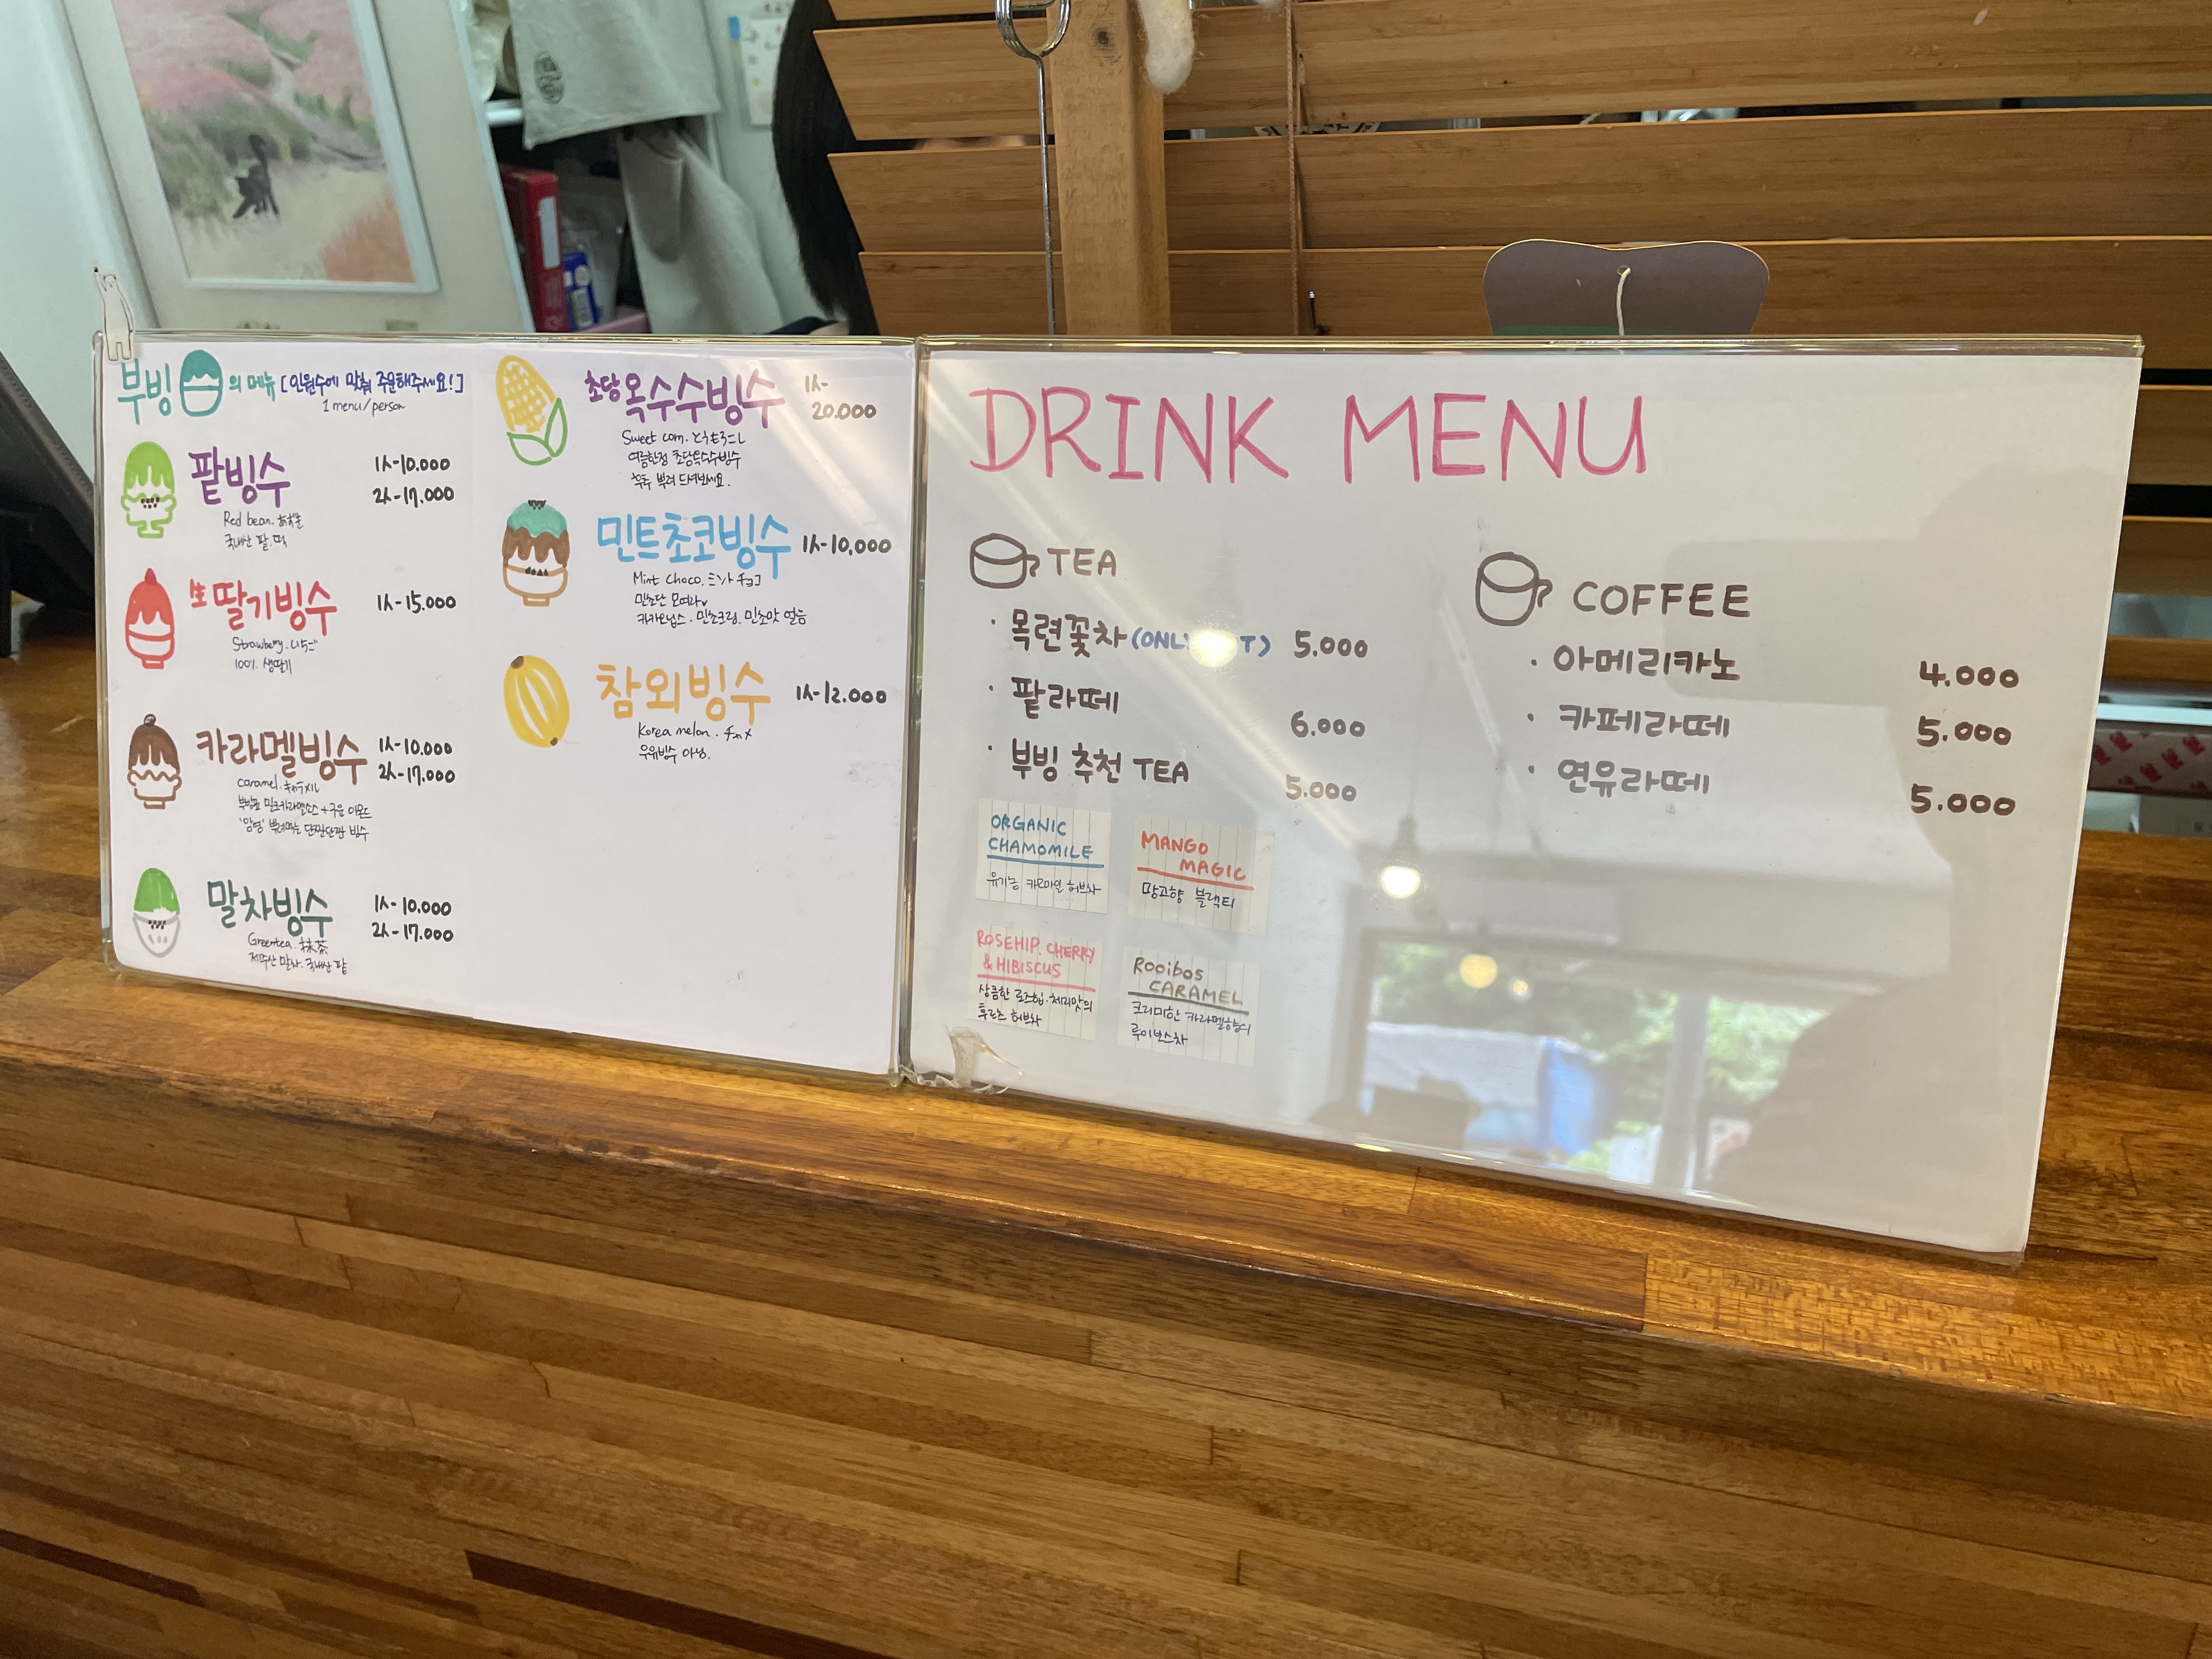 부빙 의 메뉴 [인원수에 맞춰 주문해주세요!]
1 menu/person
팥빙수
1人-10.000
2人-17.000
Red bean. あずき
국내산 팥.떡
生딸기빙수
1人-15.000
Strawberry. いちご
100% 생딸기
카라멜빙수
1人-10.000
2人-17.000
caramel. キャラメル
부빙표 밀크카라멜소스 + 구운 아몬드
'와앙' 뿌려먹는 단짠단짠 빙수
말차빙수
1人-10.000
2人-17.000
Greentea. 抹茶
제주산 말차. 국내산 팥
초당옥수수빙수
1人-
20.000
Sweet corn. とうもろこし
여름한정 초당옥수수빙수
후추 뿌려 드셔보세요.
민트초코빙수
1人-10,000
Mint choco. ミントチョコ
민초단 모여라
카카오닙스. 민초크림. 민초맛 얼음
참외빙수
1人-12.000
Korea melon. チャメ
우유빙수 아님.
DRINK MENU
TEA
· 목련꽃차 5.000
· 팥라떼 6.000
· 부빙 추천 TEA 5.000
ORGANIC
CHAMOMILE
유기농 카모마일 허브차
MANGO
MAGIC
망고향 블랙티
ROSEHIP. CHERRY
& HIBISCUS
상큼한 로즈힙.체리맛의
후르츠 허브차
Rooibos
CARAMEL
크리미한 카라멜향의
루이보스차
COFFEE
· 아메리카노 4.000
· 카페라떼 5.000
· 연유라떼 5.000